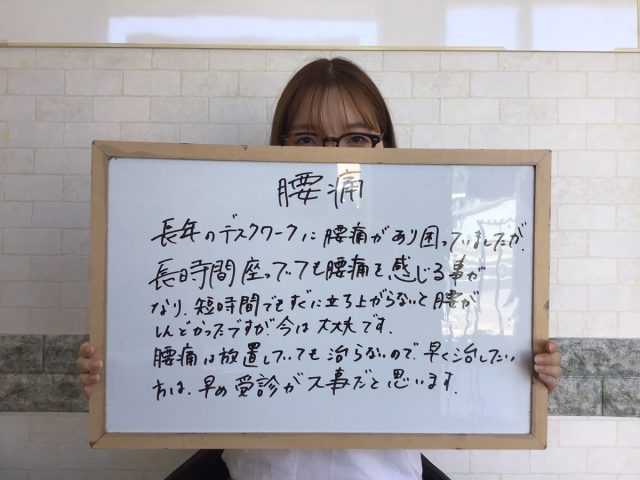 腰痛
長年のデスクワークに腰痛があり困っていましたが、
長時間座っていても腰痛を感じる事が
なり、短時間でもすぐに立ち上がらないと腰が
しんどかったですが、今は大丈夫です。
腰痛は放置していても治らないので、早く治したい
方は、早め受診が大事だと思います。